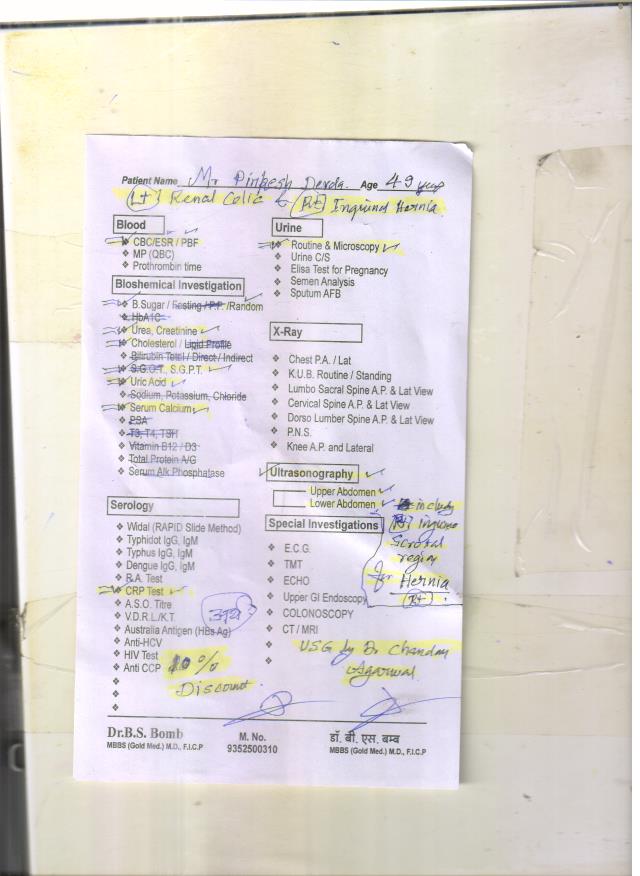 Patient Name Mr Pinkesh Derda. Age 49 year
(Lt) Renal Colic & (Rt) Inguinal Hernia.
Blood
❖ CBC/ESR / PBF
❖ MP (QBC)
❖ Prothrombin time
Bioshemical Investigation
❖ B.Sugar / Fasting / P.P. /Random
❖ HbA1C
❖ Urea, Creatinine
❖ Cholesterol / Lipid Profile
❖ Bilirubin Total / Direct / Indirect
❖ S.G.O.T., S.G.P.T.
❖ Uric Acid
❖ Sodium, Potassium, Chloride
❖ Serum Calcium
❖ PSA
❖ T3, T4, TSH
❖ Vitamin B12 / D3
❖ Total Protein A/G
❖ Serum Alk Phosphatase
Serology
❖ Widal (RAPID Slide Method)
❖ Typhidot IgG, IgM
❖ Typhus IgG, IgM
❖ Dengue IgG, IgM
❖ R.A. Test
❖ CRP Test
❖ A.S.O. Titre
❖ V.D.R.L/K.T.
❖ Australia Antigen (HBs Ag)
❖ Anti-HCV
❖ HIV Test
❖ Anti CCP
10%
Discount.
Urine
❖ Routine & Microscopy
❖ Urine C/S
❖ Elisa Test for Pregnancy
❖ Semen Analysis
❖ Sputum AFB
X-Ray
❖ Chest P.A. / Lat
❖ K.U.B. Routine / Standing
❖ Lumbo Sacral Spine A.P. & Lat View
❖ Cervical Spine A.P. & Lat View
❖ Dorso Lumber Spine A.P. & Lat View
❖ P.N.S.
❖ Knee A.P. and Lateral
Ultrasonography
Upper Abdomen
Lower Abdomen
include
(Rt) inguino
Scrotal
region
for Hernia
(Rt)
Special Investigations
❖ E.C.G.
❖ TMT
❖ ECHO
❖ Upper GI Endoscopy
❖ COLONOSCOPY
❖ CT / MRI
USG by Dr Chandan
Agarwal
Dr.B.S. Bomb
MBBS (Gold Med.) M.D., F.I.C.P
M. No.
9352500310
डॉ. बी. एस. बम्ब
MBBS (Gold Med.) M.D., F.I.C.P